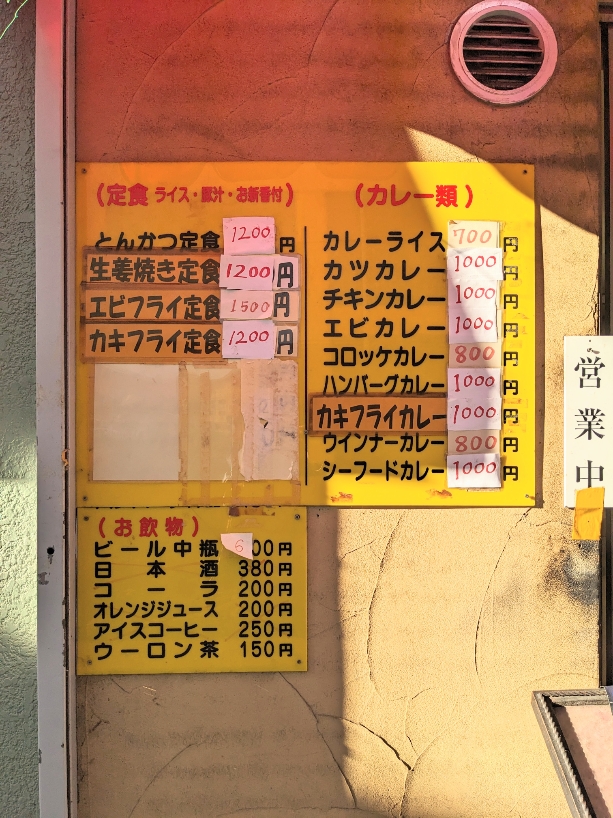 (定食 ライス・豚汁・お新香付)
とんかつ定食 1200円
生姜焼き定食 1200円
エビフライ定食 1500円
カキフライ定食 1200円
(カレー類)
カレーライス 700円
カツカレー 1000円
チキンカレー 1000円
エビカレー 1000円
コロッケカレー 800円
ハンバーグカレー 1000円
カキフライカレー 1000円
ウインナーカレー 800円
シーフードカレー 1000円
(お飲物)
ビール中瓶 600円
日本酒 380円
コーラ 200円
オレンジジュース 200円
アイスコーヒー 250円
ウーロン茶 150円
営業中